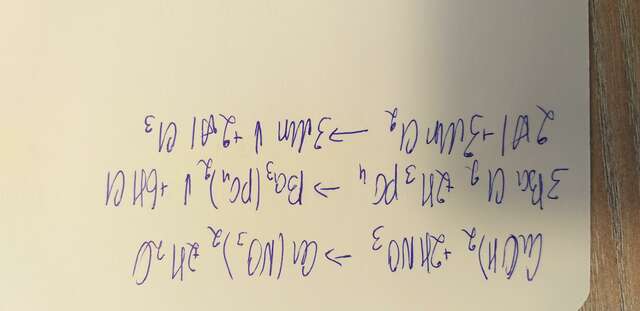 Ca(OH)₂ +2HNO₃ → Ca(NO₃)₂ +2H₂O
3BaCl₂ +2H₃PO₄ → Ba₃(PO₄)₂ ↓ +6HCl
2Al+3MnCl₂ → 3Mn ↓ +2AlCl₃